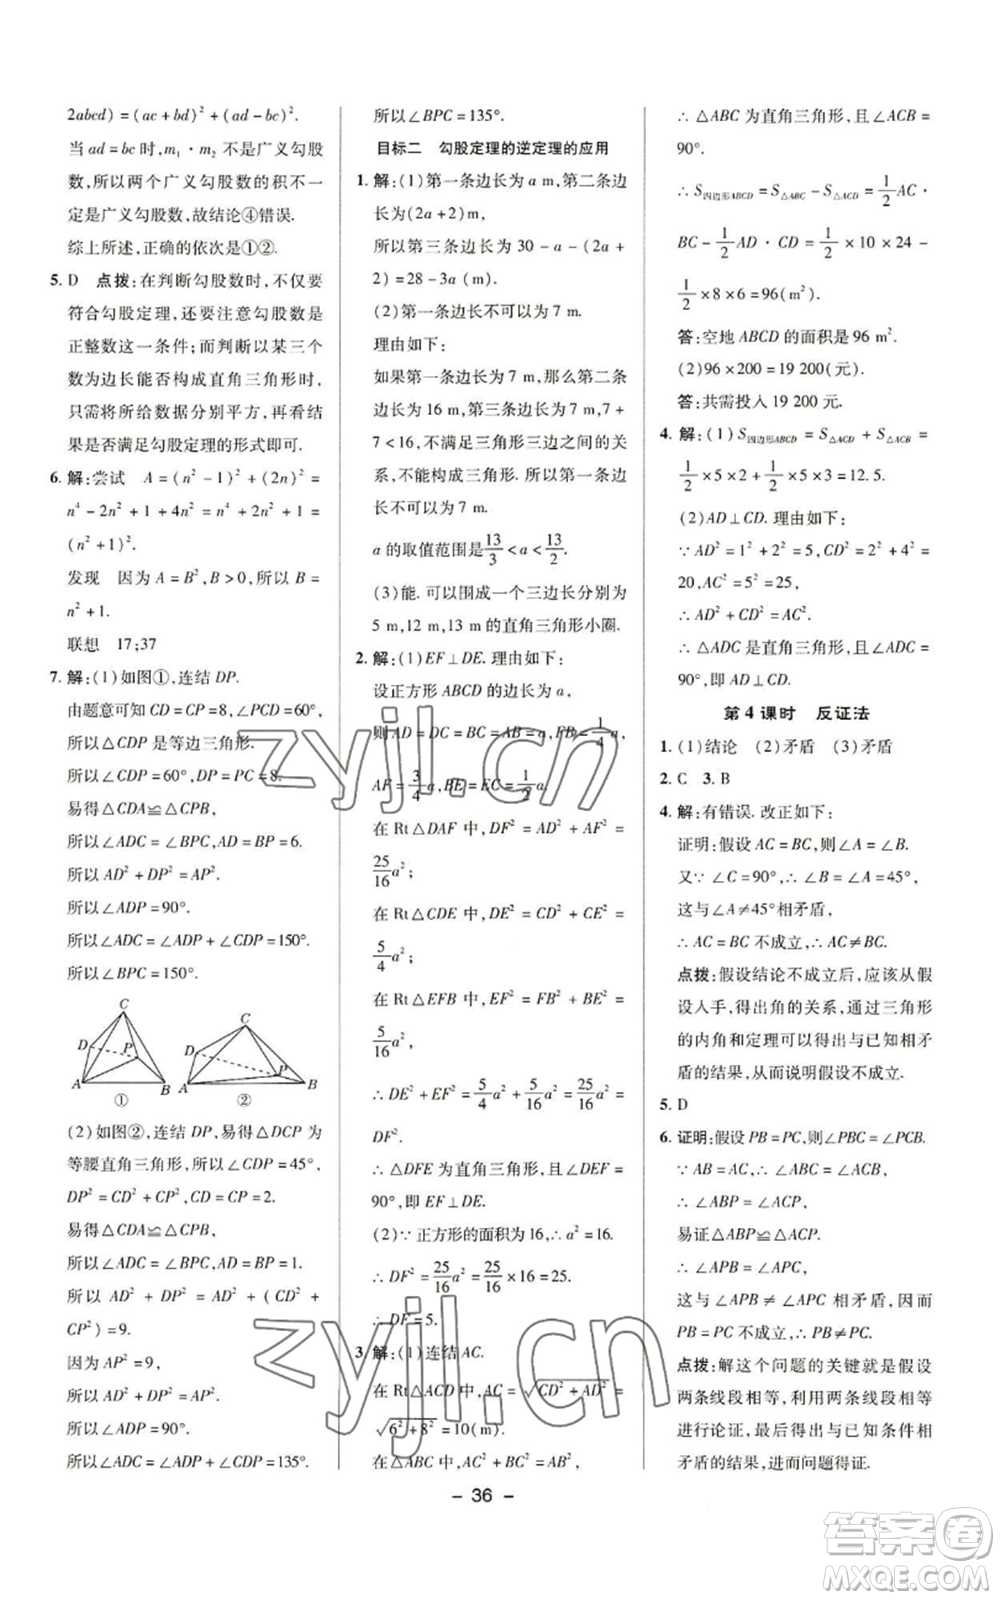 2abcd) = (ac + bd)² + (ad - bc)².
当 ad = bc 时, m₁ · m₂ 不是广义勾股
数,所以两个广义勾股数的积不一
定是广义勾股数,故结论④错误.
综上所述,正确的依次是①②.
5. D 点拨:在判断勾股数时,不仅要
符合勾股定理,还要注意勾股数是
正整数这一条件;而判断以某三个
数为边长能否构成直角三角形时,
只需将所给数据分别平方,再看结
果是否满足勾股定理的形式即可.
6. 解:尝试 A = (n² - 1)² + (2n)² =
n⁴ - 2n² + 1 + 4n² = n⁴ + 2n² + 1 =
(n² + 1)².
发现 因为 A = B², B > 0, 所以 B =
n² + 1.
联想 17;37
7. 解:(1)如图①,连结 DP.
由题意可知 CD = CP = 8, ∠PCD = 60°,
所以△CDP 是等边三角形.
所以∠CDP = 60°, DP = PC = 8.
易得△CDA≌△CPB,
所以∠ADC = ∠BPC, AD = BP = 6.
所以 AD² + DP² = AP².
所以∠ADP = 90°.
所以∠ADC = ∠ADP + ∠CDP = 150°.
所以∠BPC = 150°.
C
D
P
A
B
①
C
D
P
A
B
②
(2)如图②,连结 DP,易得△DCP 为
等腰直角三角形,所以∠CDP = 45°,
DP² = CD² + CP², CD = CP = 2.
易得△CDA≌△CPB,
所以∠ADC = ∠BPC, AD = BP = 1.
所以 AD² + DP² = AD² + (CD² +
CP²) = 9.
因为 AP² = 9,
所以 AD² + DP² = AP².
所以∠ADP = 90°.
所以∠ADC = ∠ADP + ∠CDP = 135°.
所以∠BPC = 135°.
目标二 勾股定理的逆定理的应用
1. 解:(1)第一条边长为 a m,第二条
边长为(2a + 2)m,
所以第三条边长为 30 - a - (2a +
2) = 28 - 3a(m).
(2)第一条边长不可以为 7 m.
理由如下:
如果第一条边长为 7 m,那么第二条
边长为 16 m,第三条边长为 7 m, 7 +
7 < 16,不满足三角形三边之间的关
系,不能构成三角形. 所以第一条边
长不可以为 7 m.
a 的取值范围是 13/3 < a < 13/2.
(3)能. 可以围成一个三边长分别为
5 m,12 m,13 m 的直角三角形小圈.
2. 解:(1) EF⊥DE. 理由如下:
设正方形 ABCD 的边长为 a,
则 AD = DC = BC = AB = a, FB = 1/4 a,
AF = 3/4 a, BE = EC = 1/2 a.
在 Rt△DAF 中, DF² = AD² + AF² =
25/16 a²;
在 Rt△CDE 中, DE² = CD² + CE² =
5/4 a²;
在 Rt△EFB 中, EF² = FB² + BE² =
5/16 a²,
∴ DE² + EF² = 5/4 a² + 5/16 a² = 25/16 a² =
DF².
∴ △DFE 为直角三角形,且∠DEF =
90°,即 EF⊥DE.
(2)∵ 正方形的面积为 16,∴ a² = 16.
∴ DF² = 25/16 a² = 25/16 × 16 = 25.
∴ DF = 5.
3. 解:(1)连结 AC.
在 Rt△ACD 中, AC = √(CD² + AD²) =
√(6² + 8²) = 10(m).
在△ABC 中, AC² + BC² = AB²,
∴ △ABC 为直角三角形,且∠ACB =
90°.
∴ S四边形ABCD = S△ABC - S△ACD = 1/2 AC ·
BC - 1/2 AD · CD = 1/2 × 10 × 24 -
1/2 × 8 × 6 = 96(m²).
答:空地 ABCD 的面积是 96 m².
(2)96 × 200 = 19 200(元).
答:共需投入 19 200 元.
4. 解:(1) S四边形ABCD = S△ACD + S△ACB =
1/2 × 5 × 2 + 1/2 × 5 × 3 = 12.5.
(2) AD⊥CD. 理由如下:
∵ AD² = 1² + 2² = 5, CD² = 2² + 4² =
20, AC² = 5² = 25,
∴ AD² + CD² = AC².
∴ △ADC 是直角三角形,∠ADC =
90°,即 AD⊥CD.
第 4 课时 反证法
1. (1)结论 (2)矛盾 (3)矛盾
2. C 3. B
4. 解:有错误. 改正如下:
证明:假设 AC = BC,则∠A = ∠B.
又∵ ∠C = 90°,∴ ∠B = ∠A = 45°,
这与∠A≠45°相矛盾,
∴ AC = BC 不成立,∴ AC≠BC.
点拨:假设结论不成立后,应该从假
设入手,得出角的关系,通过三角形
的内角和定理可以得出与已知相矛
盾的结果,从而说明假设不成立.
5. D
6. 证明:假设 PB = PC,则∠PBC = ∠PCB.
∵ AB = AC,∴ ∠ABC = ∠ACB.
∴ ∠ABP = ∠ACP.
易证△ABP≌△ACP.
∴ ∠APB = ∠APC.
这与∠APB≠∠APC 相矛盾,因而
PB = PC 不成立,∴ PB≠PC.
点拨:解这个问题的关键就是假设
两条线段相等,利用两条线段相等
进行论证,最后得出与已知条件相
矛盾的结果,进而问题得证.
- 36 -
zyjl.cn
zyjl.cn
答案圈
MXQE.COM